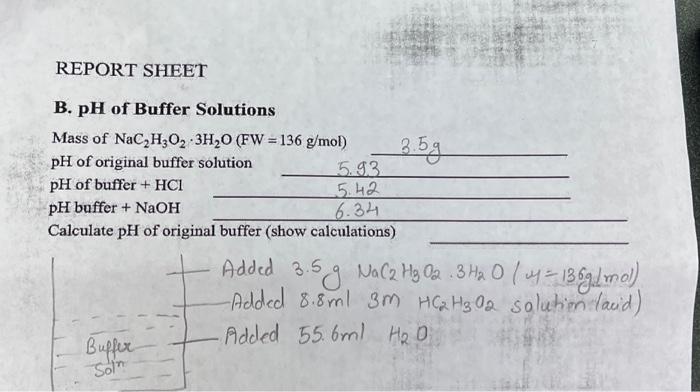 REPORT SHEET
B. pH of Buffer Solutions
Mass of NaC₂H₃O₂·3H₂O (FW = 136 g/mol) 3.5g
pH of original buffer solution 5.93
pH of buffer + HCl 5.42
pH buffer + NaOH 6.34
Calculate pH of original buffer (show calculations)
Added 3.5g NaC2H3O2.3H2O (M=136g/mol)
Added 8.8ml 3m HC2H3O2 solution (acid)
Added 55.6ml H2O
Buffer
Solⁿ